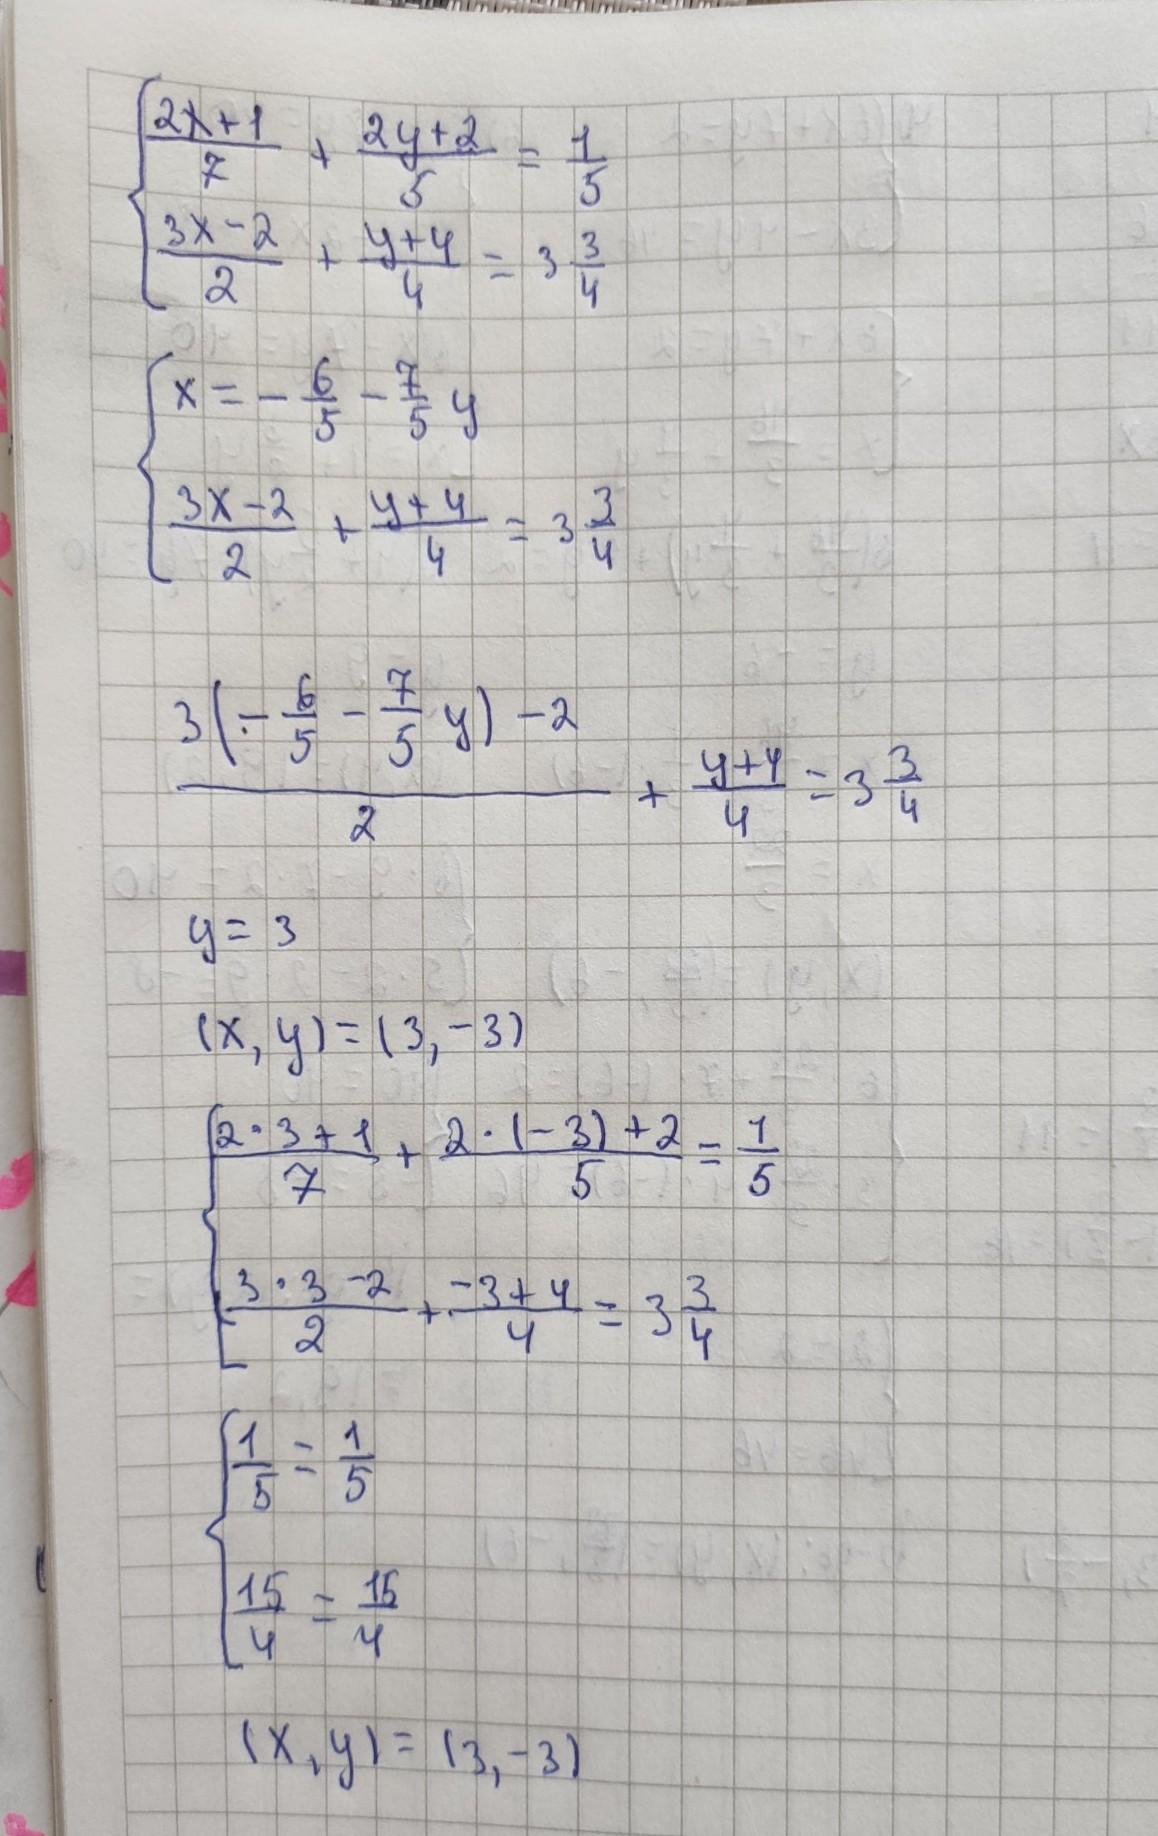 { (2x+1)/7 + (2y+2)/5 = 1/5
(3x-2)/2 + (y+4)/4 = 3 3/4
{ x = - 6/5 - 7/5 y
(3x-2)/2 + (y+4)/4 = 3 3/4
(3(- 6/5 - 7/5 y) - 2)/2 + (y+4)/4 = 3 3/4
y = 3
(x, y) = (3, -3)
{ (2·3+1)/7 + (2·(-3)+2)/5 = 1/5
(3·3-2)/2 + (-3+4)/4 = 3 3/4
{ 1/5 = 1/5
15/4 = 15/4
(x, y) = (3, -3)